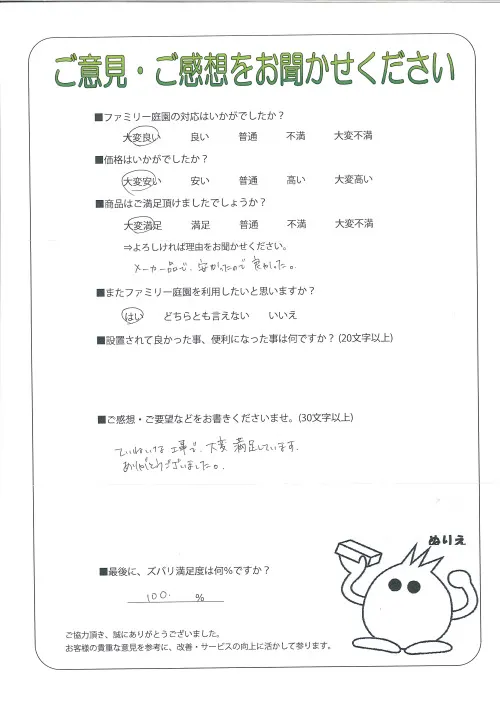 ご意見・ご感想をお聞かせください
■ファミリー庭園の対応はいかがでしたか？
大変良い 良い 普通 不満 大変不満
■価格はいかがでしたか？
大変安い 安い 普通 高い 大変高い
■商品はご満足頂けましたでしょうか？
大変満足 満足 普通 不満 大変不満
⇒よろしければ理由をお聞かせください。
メーカー品で、安かったので良かった。
■またファミリー庭園を利用したいと思いますか？
はい どちらとも言えない いいえ
■設置されて良かった事、便利になった事は何ですか？(20文字以上)
■ご感想・ご要望などをお書きくださいませ。(30文字以上)
ていねいな工事で、大変満足しています。
ありがとうございました。
ぬりえ
■最後に、ズバリ満足度は何％ですか？
100. %
ご協力頂き、誠にありがとうございました。
お客様の貴重な意見を参考に、改善・サービスの向上に活かして参ります。